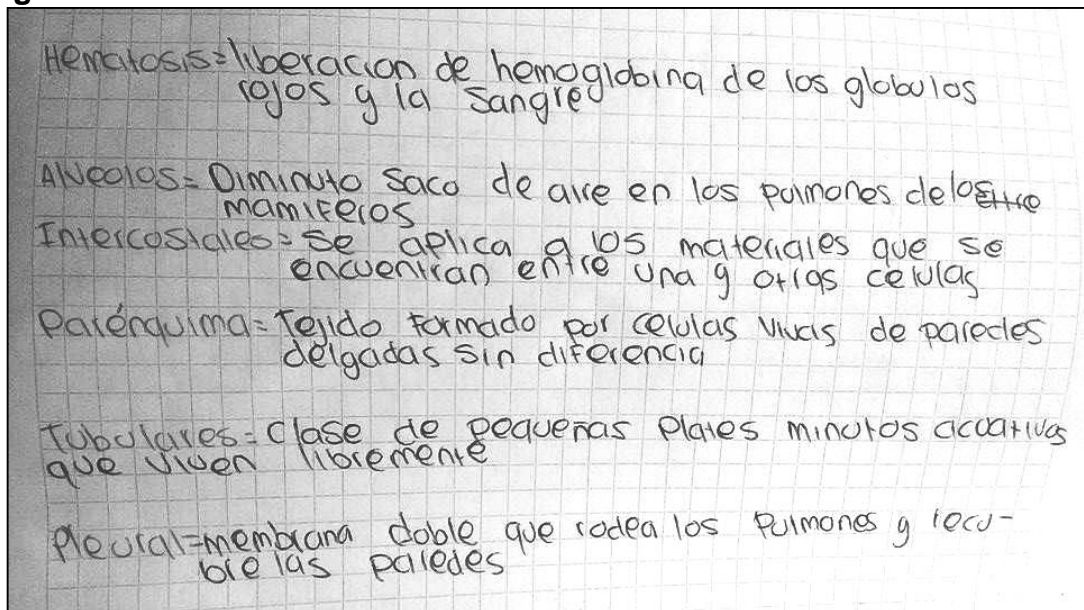 Hematosis=liberacion de hemoglobina de los globulos
rojos y la sangre
Alveolos= Diminuto saco de aire en los pulmones de los
mamiferos
Intercostales= se aplica a los materiales que se
encuentran entre una y otras celulas
Parénquima= Tejido formado por celulas vivas de paredes
delgadas sin diferencia
Tubulares= clase de pequeñas minutos acuativos
que viven libremente
Pleural=membrana doble que rodea los pulmones y recu-
bre las paredes